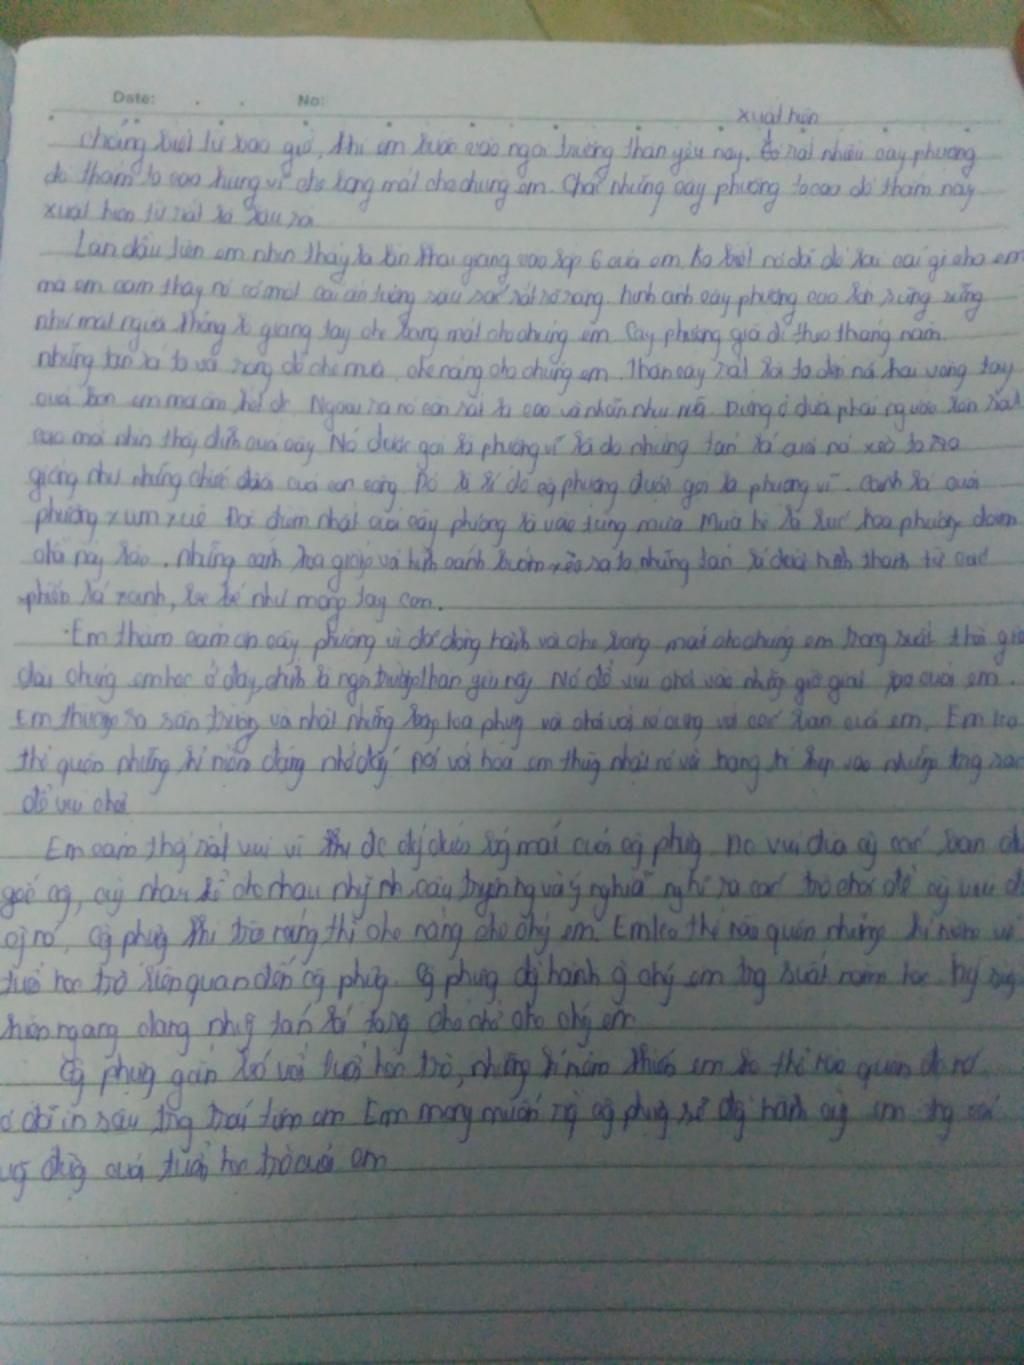 Date: No:
xuất hiện
Chẳng biết từ bao giờ, khi em bước vào ngôi trường thân yêu này. Có rất nhiều cây phượng
đỏ thắm to cao hùng vĩ che bóng mát cho chúng em. Chắc những cây phượng to cao đỏ thắm này
xuất hiện từ rất là lâu rồi
Lần đầu tiên em nhìn thấy là lần khai giảng vào lớp 6 của em. Ko biết nó đã để lại cái gì cho em
mà em cảm thấy nó có một cái ấn tượng sâu sắc rất rõ ràng. hình ảnh cây phượng cao lớn sừng sững
như một người khổng lồ giang tay che bóng mát cho chúng em. Cây phượng già đi theo tháng năm.
những tán lá to và rộng để che mưa, che nắng cho chúng em. Thân cây rất là to đến nỗi hai vòng tay
của bọn em mà ôm hết đc Ngoài ra nó còn rất là cao và nhẵn như Đứng ở dưới phải ngước lên rất
cao mới nhìn thấy đỉnh của cây Nó được gọi là phượng vĩ là do những tán lá của nó xoè to
giống như những chiếc đuôi của con công Đó là lí do cây phượng được gọi là phượng vĩ. cành lá của
phượng xum xuê Đặc điểm nhất của cây phượng là vào từng mùa Mùa hè là lúc hoa phượng đơm
những cánh hoa giống với hình cánh bướm xoè ra to những tán lá được hình thành từ các
phiến lá xanh, be bé như móng tay con.
Em thầm cảm ơn cây phượng vì đã đồng hành và che bóng mát cho chúng em trong suốt thời
chúng em học ở đây, chính là ngôi trường thân yêu này Nó để vui chơi vào những giờ giải lao của em.
Em thường ra sân trường và nhặt những bông hoa phượng và chơi với nó cùng với các bạn của em. Em ko
thể quên những kỉ niệm đáng nhớ đấy Đối với hoa em thường nhặt nó và trang trí
để vui chơi
Em cảm thấy rất vui vì khi đc đứng dưới bóng mát của cây phượng. nô vui đùa cùng các bạn
gốc cây, cùng nhau kể cho nhau những câu truyện ý nghĩa nghĩ ra các trò chơi để cùng vui
cùng nó. Cây phượng khi trời nắng thì che nắng cho chúng em. Em ko thể nào quên những kỉ niệm về
tuổi học trò liên quan đến cây phượng. Cây phượng đồng hành cùng chúng em trong suốt năm học
hiên ngang dang những tán lá rộng che chở cho chúng em
Cây phượng gắn bó với tuổi học trò, những kỉ niệm khiến em ko thể nào quên
đã in sâu trong trái tim em Em mong muốn rằng cây phượng sẽ đồng hành cùng em trong
của tuổi học trò của em